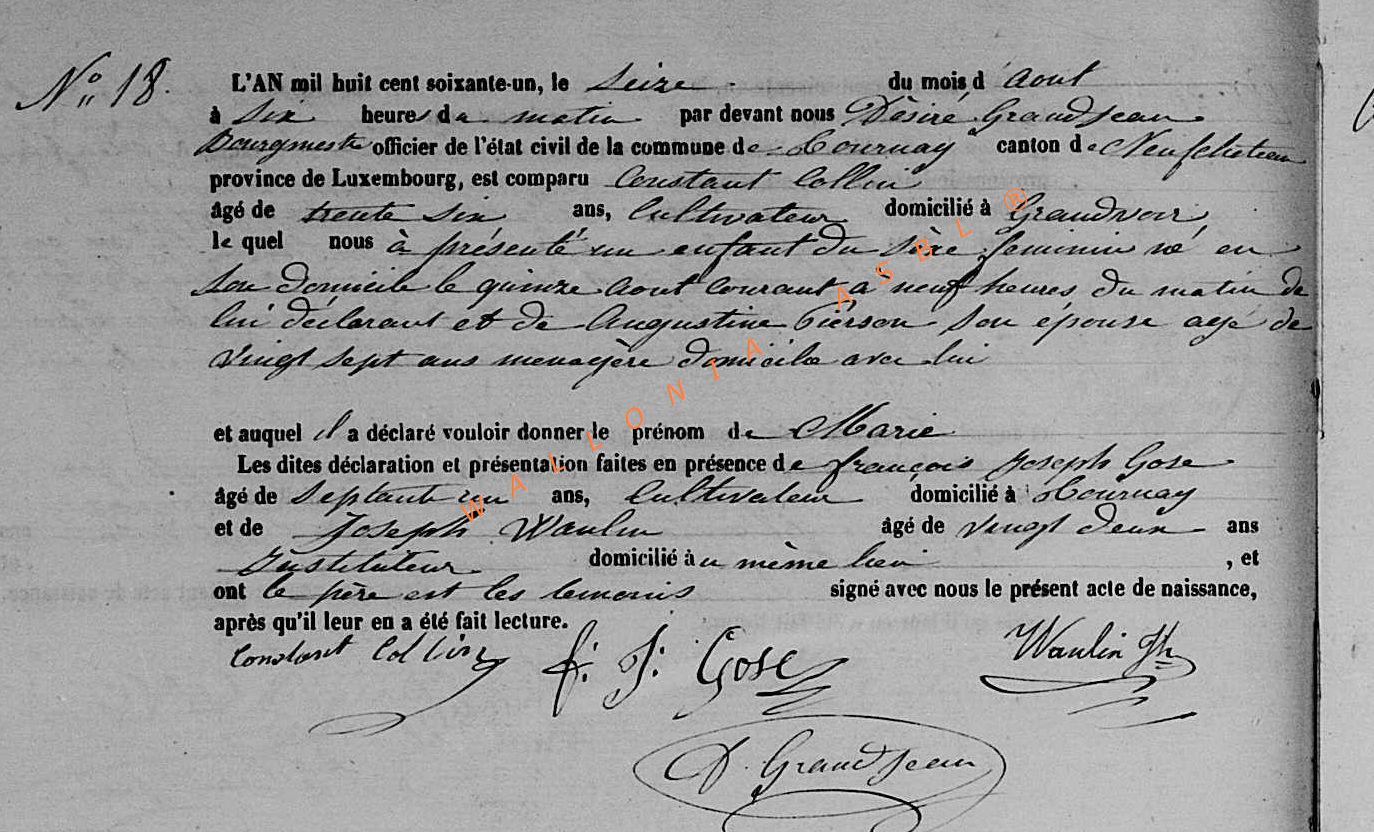 No 18.
L'AN mil huit cent soixante-un, le Seize du mois d' Aout
à Six heures du matin par devant nous Désiré Grandjean
Bourgmestre officier de l'état civil de la commune de Tournay canton de Neufchateau
province de Luxembourg, est comparu Constant Collin
âgé de trente six ans, Cultivateur domicilié à Grandvoir
le quel nous à présenté un enfant du sèxe feminin né en
son domicile le quinze Aout courant à neuf heures du matin de
lui déclarant et de Augustine Pierson son épouse agé de
vingt sept ans menagère domicile avec lui
et auquel il a déclaré vouloir donner le prénom de Marie
Les dites déclaration et présentation faites en présence de françois Joseph Gose
âgé de Septante un ans, Cultivateur domicilié à Tournay
et de Joseph Waulin âgé de vingt deux ans
Instituteur domicilié au même lieu , et
ont le père est les temoins signé avec nous le présent acte de naissance,
après qu'il leur en a été fait lecture.
Constant Collin F: J: Gose Waulin Jh
D. Grandjean
WALLONIA ASBL ®